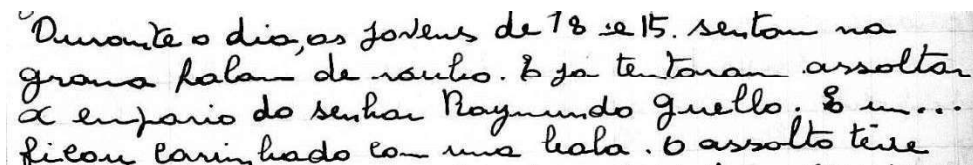 Durante o dia, os jovens de 18 e 15. sentam na
grama falam de roubo. E ja tentaram assoltar
o empario do senhor Raymundo Guello. E um...
ficou carinhado com uma bala. O assolto teve